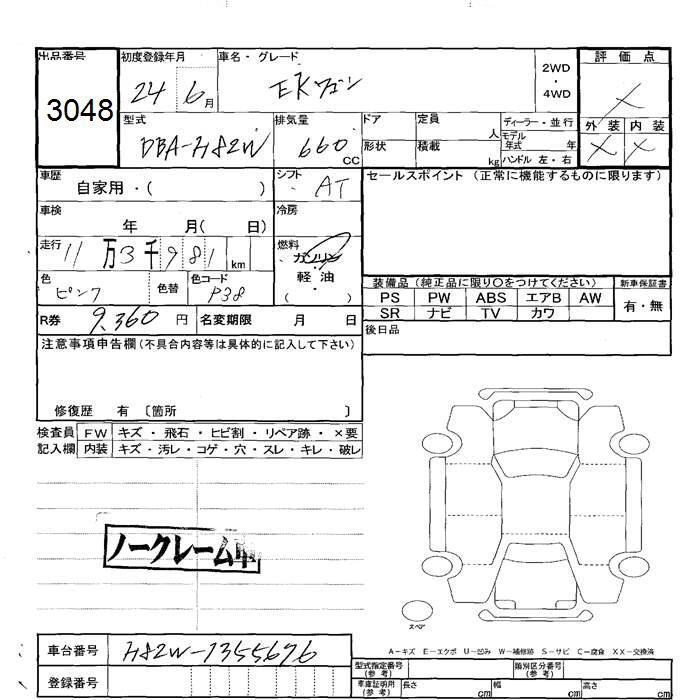 出品番号 初度登録年月 車名・グレード 2WD 4WD 評価点
3048 24 6月 EKワゴン ×
型式 排気量 ドア 定員 人 ディーラー・並行 外装 内装
DBA-H82W 660 CC 形状 積載 kg モデル年式 年 ハンドル 左・右 × ×
車歴 自家用・( ) シフト AT セールスポイント (正常に機能するものに限ります)
車検 年 月( 日) 冷房
走行 11万3千981 km 燃料 ガソリン 軽油 ( ・ )
装備品(純正品に限り○をつけてください) 新車保証書
色 ピンク 色替 色コード P38 PS PW ABS エアB AW 有・無
SR ナビ TV カワ
R券 9,360円 名変期限 月 日 後日品
注意事項申告欄(不具合内容等は具体的に記入して下さい)
修復歴 有 〔箇所 〕
検査員 FW キズ・飛石・ヒビ割・リペア跡・×要
記入欄 内装 キズ・汚レ・コゲ・穴・スレ・キレ・破レ
ノークレーム車
スペア
A-キズ E-エクボ U-凹み W-補修跡 S-サビ C-腐食 XX-交換済
車台番号 H82W-1355676 型式指定番号(参考) 類別区分番号(参考)
登録番号 車庫証明用(参考) 長さ cm 幅 cm 高さ cm